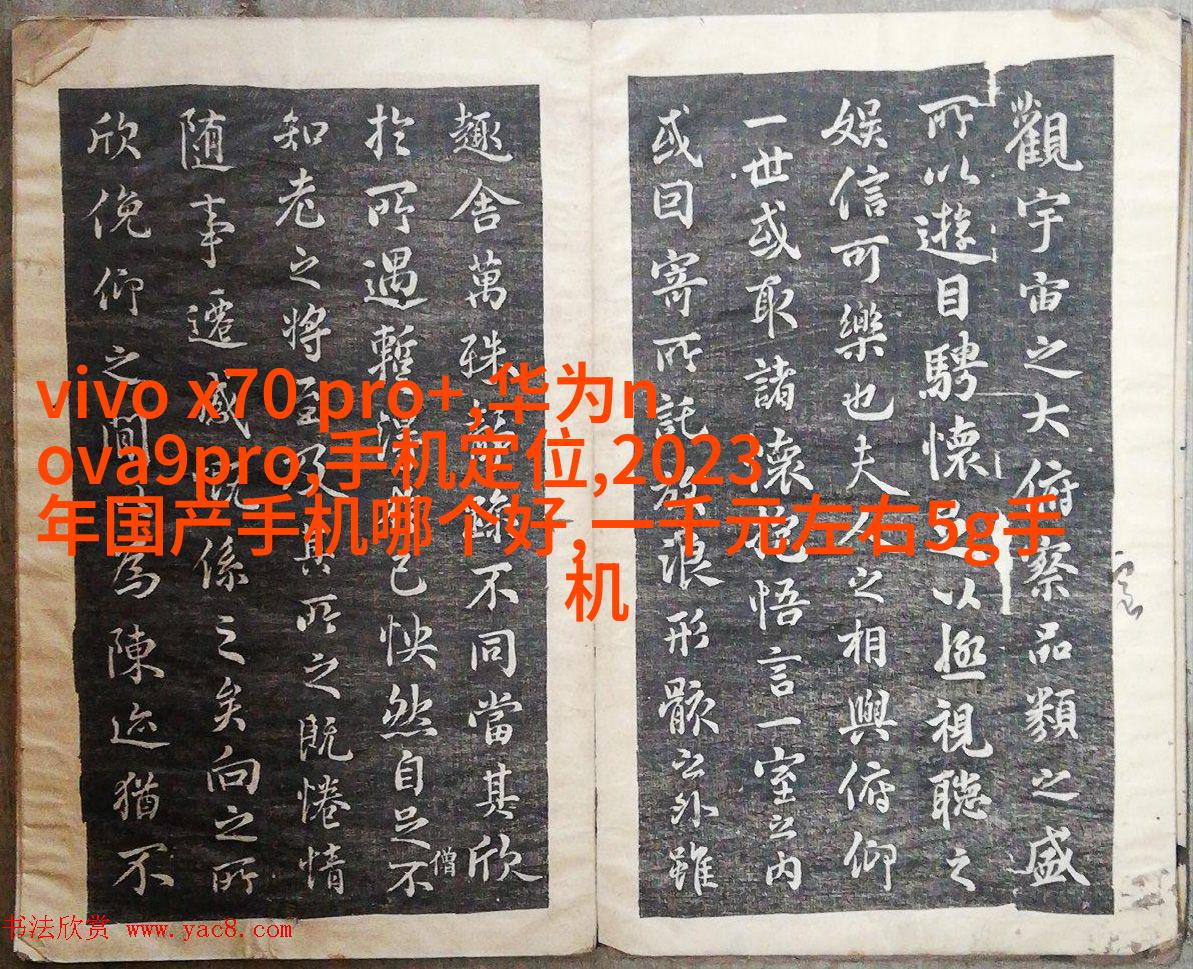 觀宇宙之大俯察品類之盛
所以遊目騁懷足以極視聽之
娛信可樂也夫人之相與俯仰
一世或取諸懷抱悟言一室之内
或因寄所託放浪形骸之外雖
趣舍萬殊靜躁不同當其欣
於所遇暫得於己怏然自足不
僧
知老之將至及其所之既惓情
随事遷感慨係之矣向之所
欣俛仰之間以為陳迹猶不
vivo x70 pro+,华为n
ova9pro,手机定位,2023
年国产手机哪个好,一千元左右5g手
机
书法欣赏 www.yac8.com